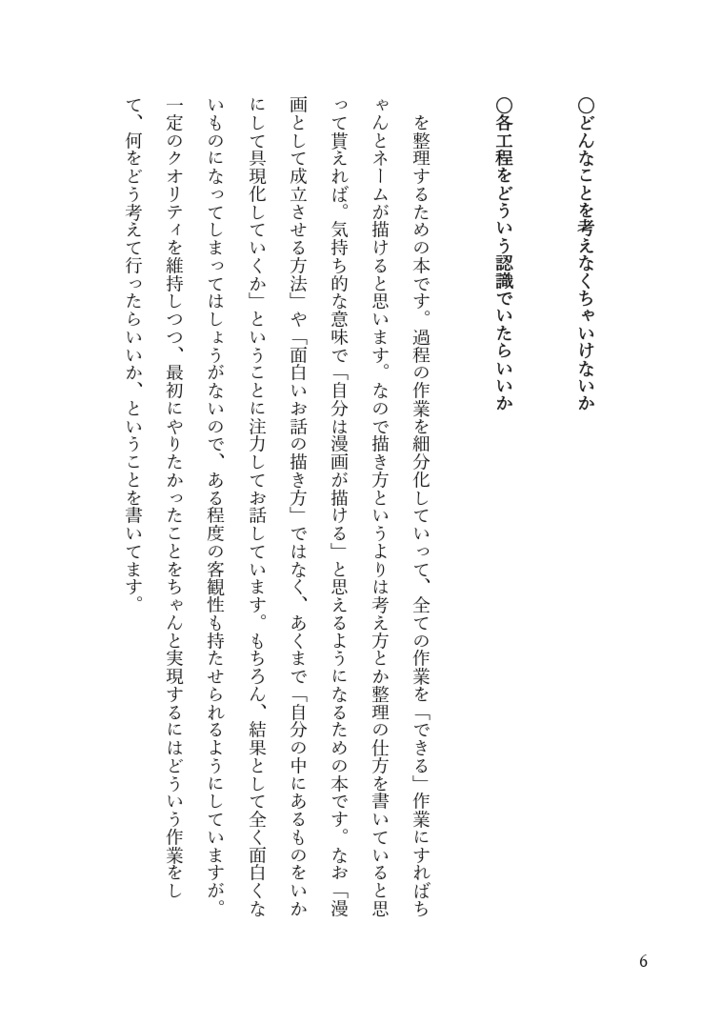 〇どんなことを考えなくちゃいけないか
〇各工程をどういう認識でいたらいいか
を整理するための本です。過程の作業を細分化していって、全ての作業を「できる」作業にすればち
ゃんとネームが描けると思います。なので描き方というよりは考え方とか整理の仕方を書いていると思
って貰えれば。気持ち的な意味で「自分は漫画が描ける」と思えるようになるための本です。なお「漫
画として成立させる方法」や「面白いお話の描き方」ではなく、あくまで「自分の中にあるものをいか
にして具現化していくか」ということに注力してお話しています。もちろん、結果として全く面白くな
いものになってしまってはしょうがないので、ある程度の客観性も持たせられるようにしていますが。
一定のクオリティを維持しつつ、最初にやりたかったことをちゃんと実現するにはどういう作業をし
て、何をどう考えて行ったらいいか、ということを書いてます。
6